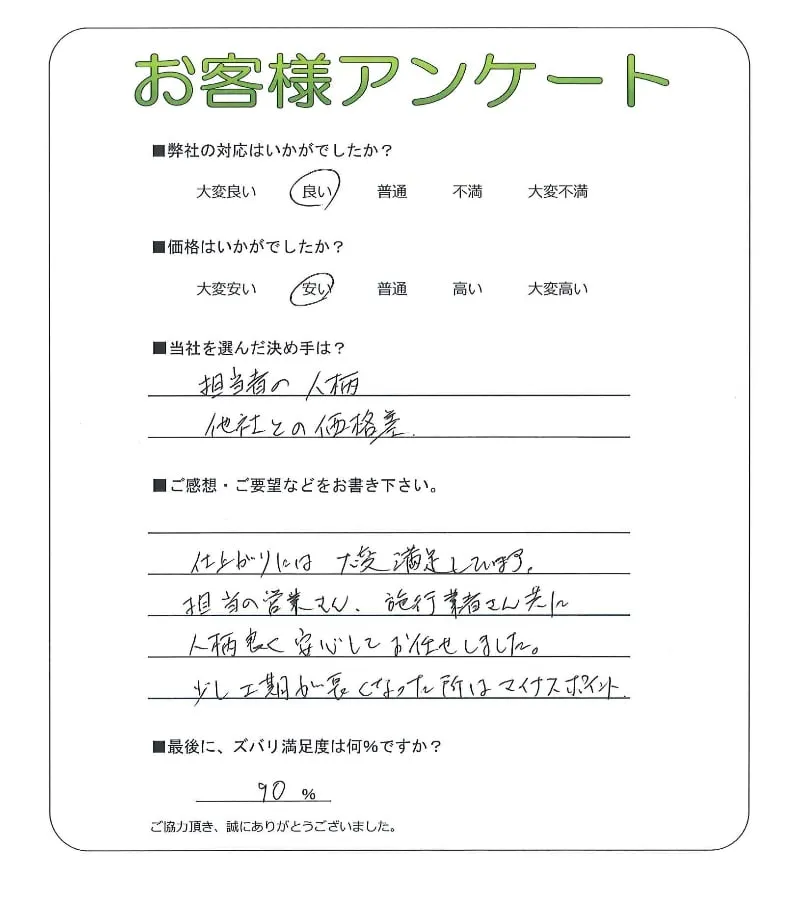 お客様アンケート
■弊社の対応はいかがでしたか？
大変良い 良い 普通 不満 大変不満
■価格はいかがでしたか？
大変安い 安い 普通 高い 大変高い
■当社を選んだ決め手は？
担当者の人柄
他社との価格差.
■ご感想・ご要望などをお書き下さい。
仕上がりには大変満足しています。
担当の営業さん、施行業者さん共に
人柄良く安心してお任せしました。
少し工期が長くなった所はマイナスポイント.
■最後に、ズバリ満足度は何％ですか？
90 %
ご協力頂き、誠にありがとうございました。